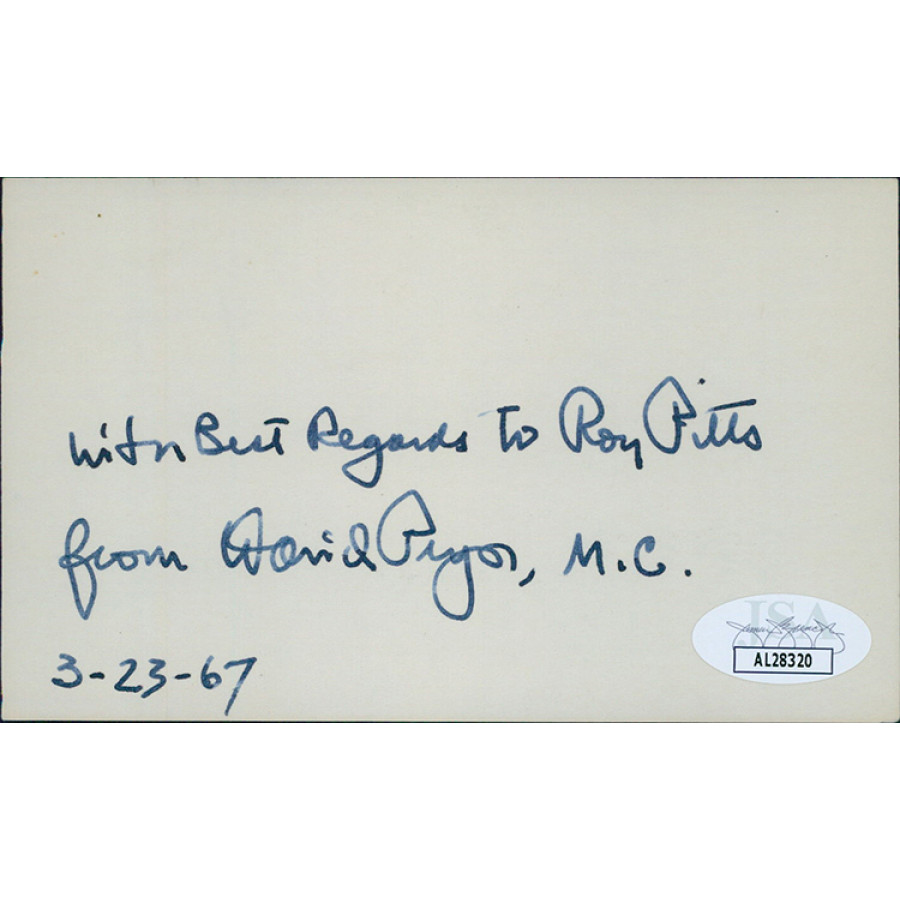 With Best Regards to Roy Pitts
from David Pryor, M.C.
3-23-67
JSA
AL28320